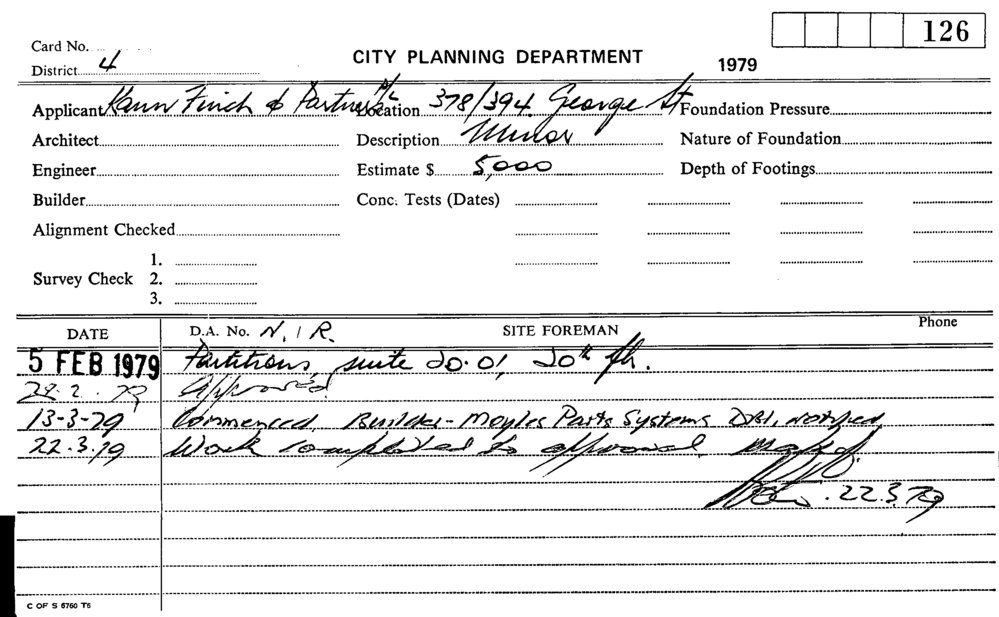 126
Card No.
CITY PLANNING DEPARTMENT 1979
District 4
Applicant Kann Finch & Partners P/L Location 378/394 George St Foundation Pressure
Architect Description Minor Nature of Foundation
Engineer Estimate $ 5,000 Depth of Footings
Builder Conc. Tests (Dates)
Alignment Checked
1.
Survey Check 2.
3.
DATE D.A. No. N.I.R. SITE FOREMAN Phone
5 FEB 1979 Partitions, suite 20.01, 20th flr.
22.2.79 Approved
13-3-79 Commenced, Builder - Moyles Parts Systems DBI, notified
22.3.79 Work completed to approval.
22.3.79
C OF S 6760 T5